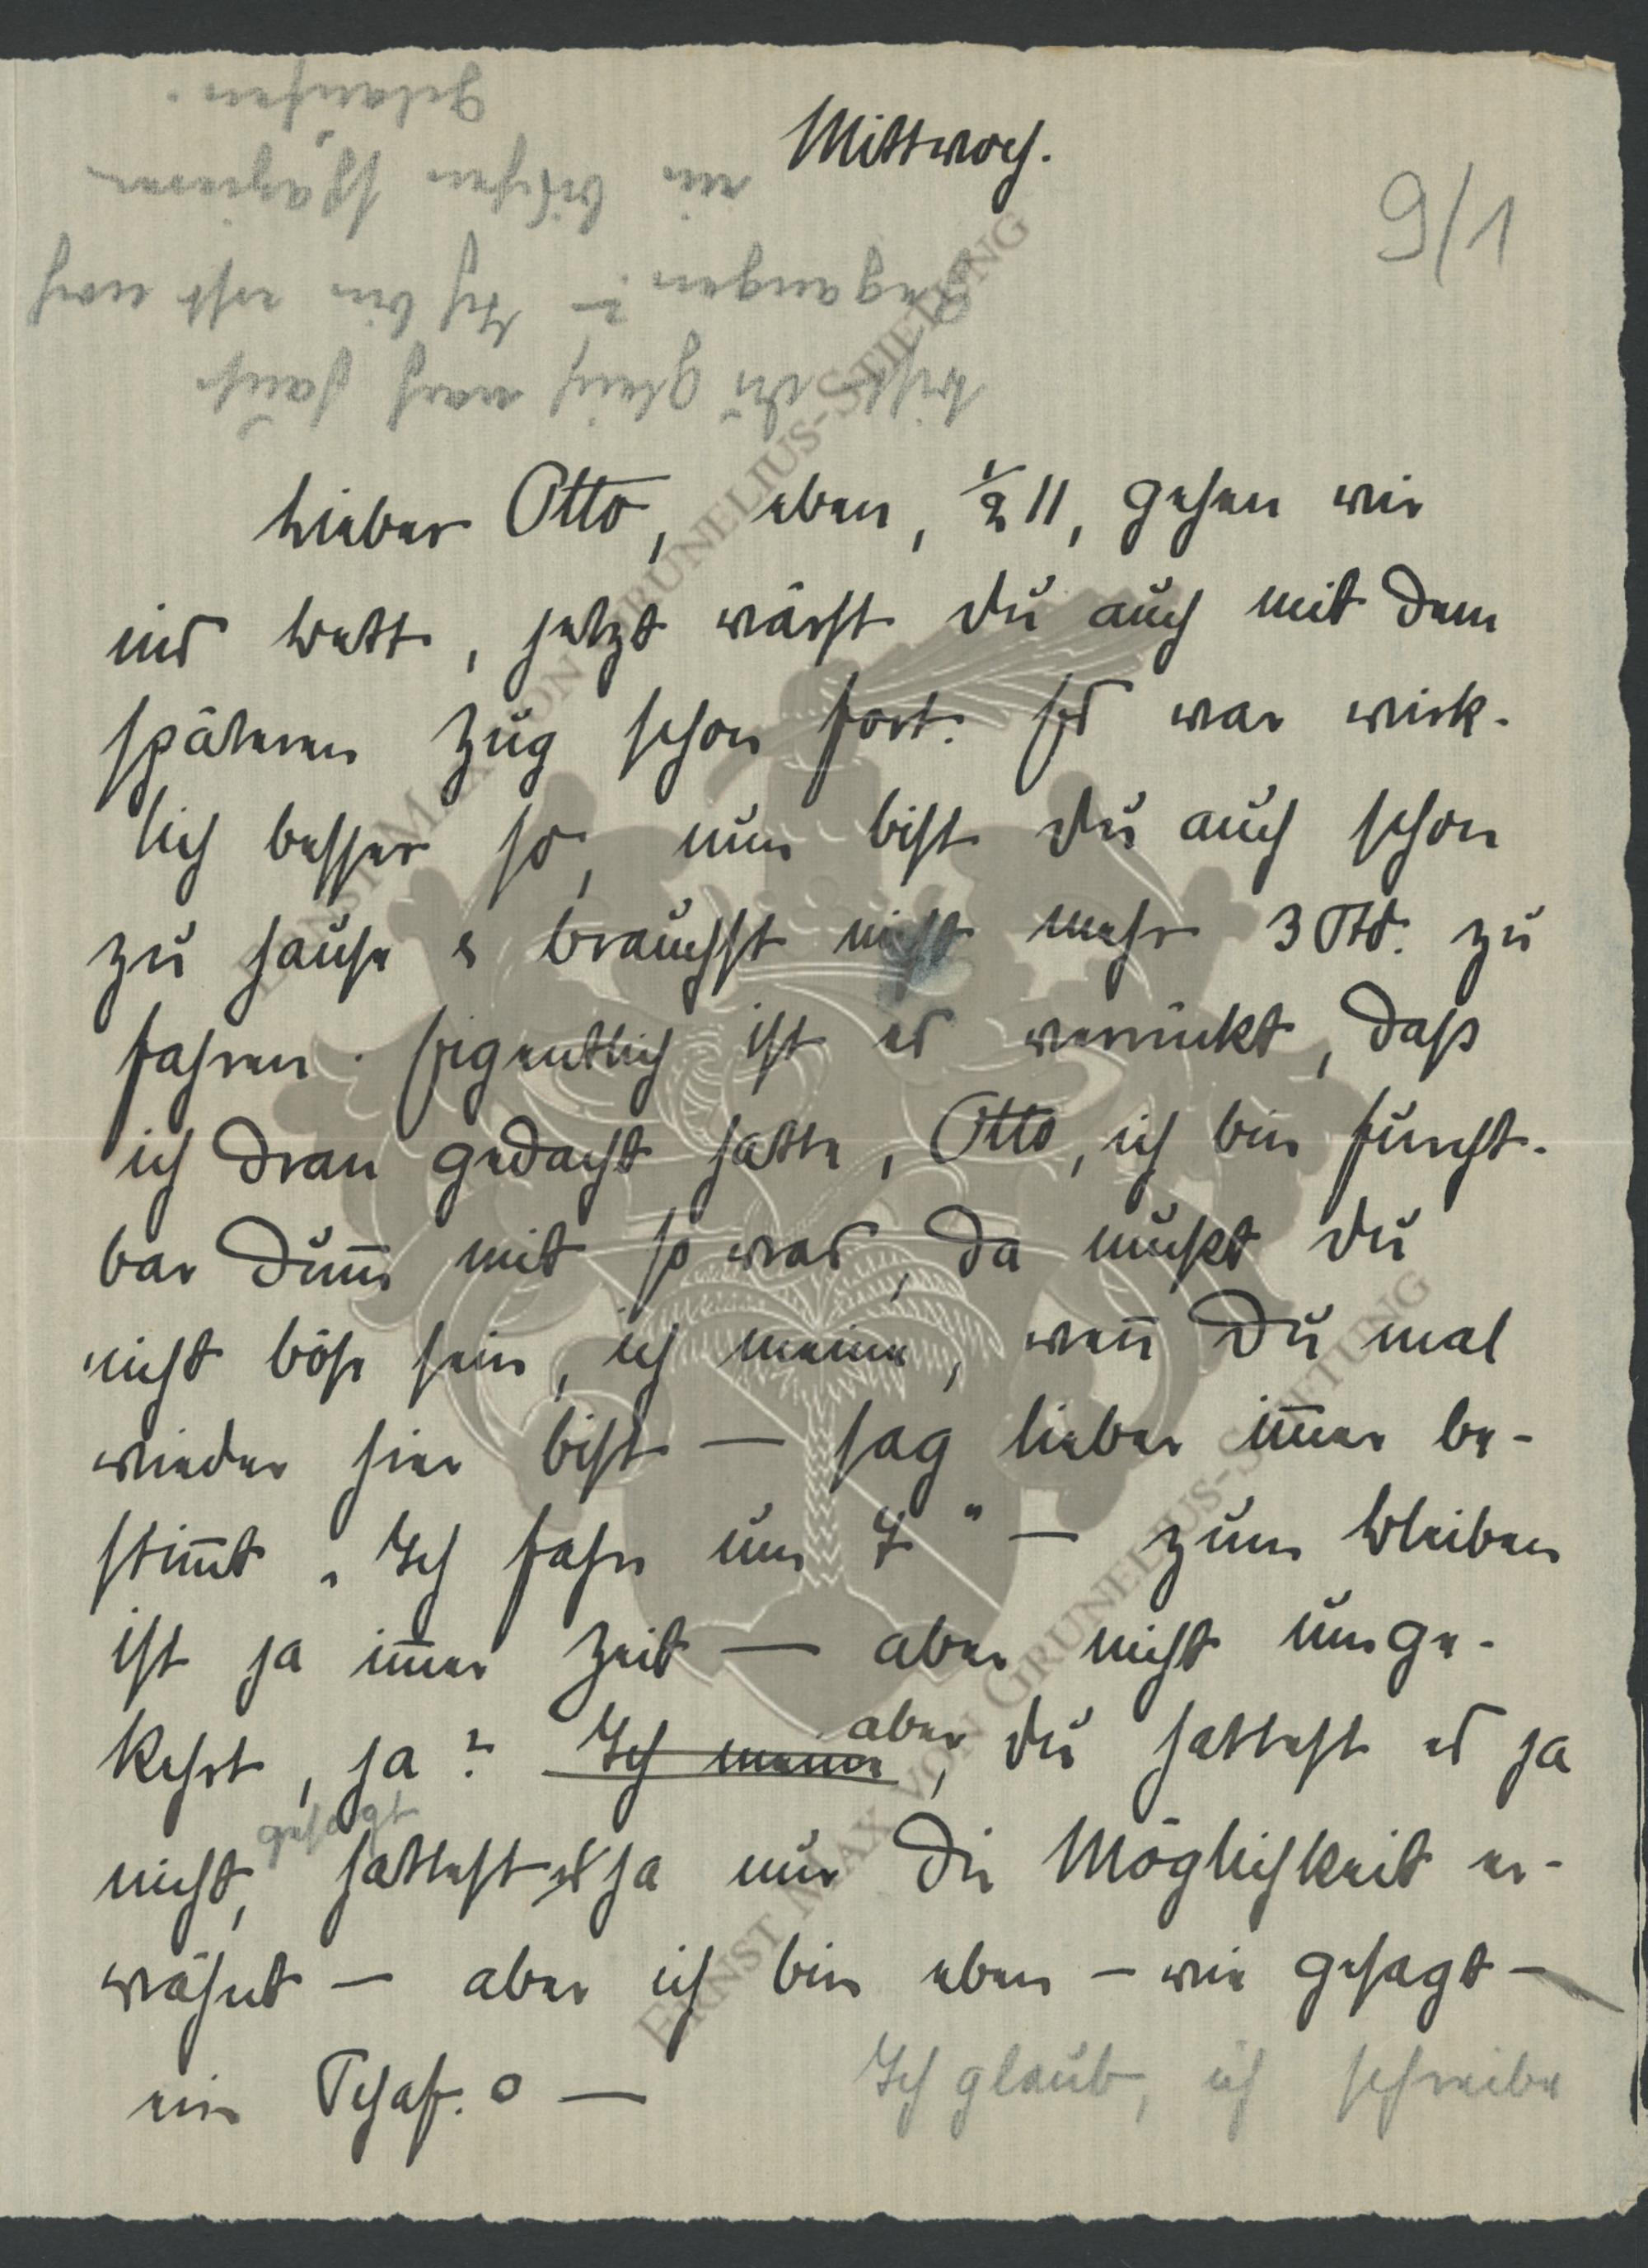 Mittwoch.
9/1
Lieber Otto, eben, ½ 11, gehen wir
ins Bett, jetzt wärst du auch mit dem
späteren Zug schon fort. Es war wirk-
lich besser so, nun bist du auch schon
zu hause & brauchst nicht mehr 3 Std. zu
fahren. Eigentlich ist es verrückt, daß
ich dran gedacht hatte, Otto, ich bin furcht-
bar dum̅ mit so was, da mußt du
nicht böse sein, ich meine, wen̅ Du mal
wieder hier bist — sag lieber im̅er be-
stim̅t „Ich fahr um 7" — zum Bleiben
ist ja im̅er Zeit — aber nicht umge-
kehrt, ja? Ich meine aber, du hattest es ja
nicht gesagt, hattest es ja nur die Möglichkeit er-
wähnt — aber ich bin eben — wie gesagt —
ein Schaf. o — Ich glaub, ich schreibe
bist du gleich nach Haus
gegangen? — Ich bin erst noch
ein bischen spazieren
gelaufen.
ERNST MAX VON GRUNELIUS-STIFTUNG
ERNST MAX VON GRUNELIUS-STIFTUNG